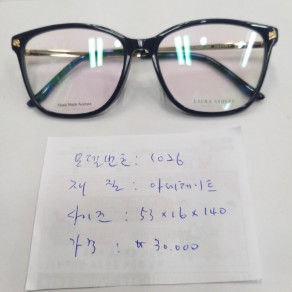 Hand Made Acetate
LAURA ASHLEY
모델번호 : 1026
재 질 : 아세테이트
사이즈 : 53 × 16 × 140
가격 : ₩ 30.000